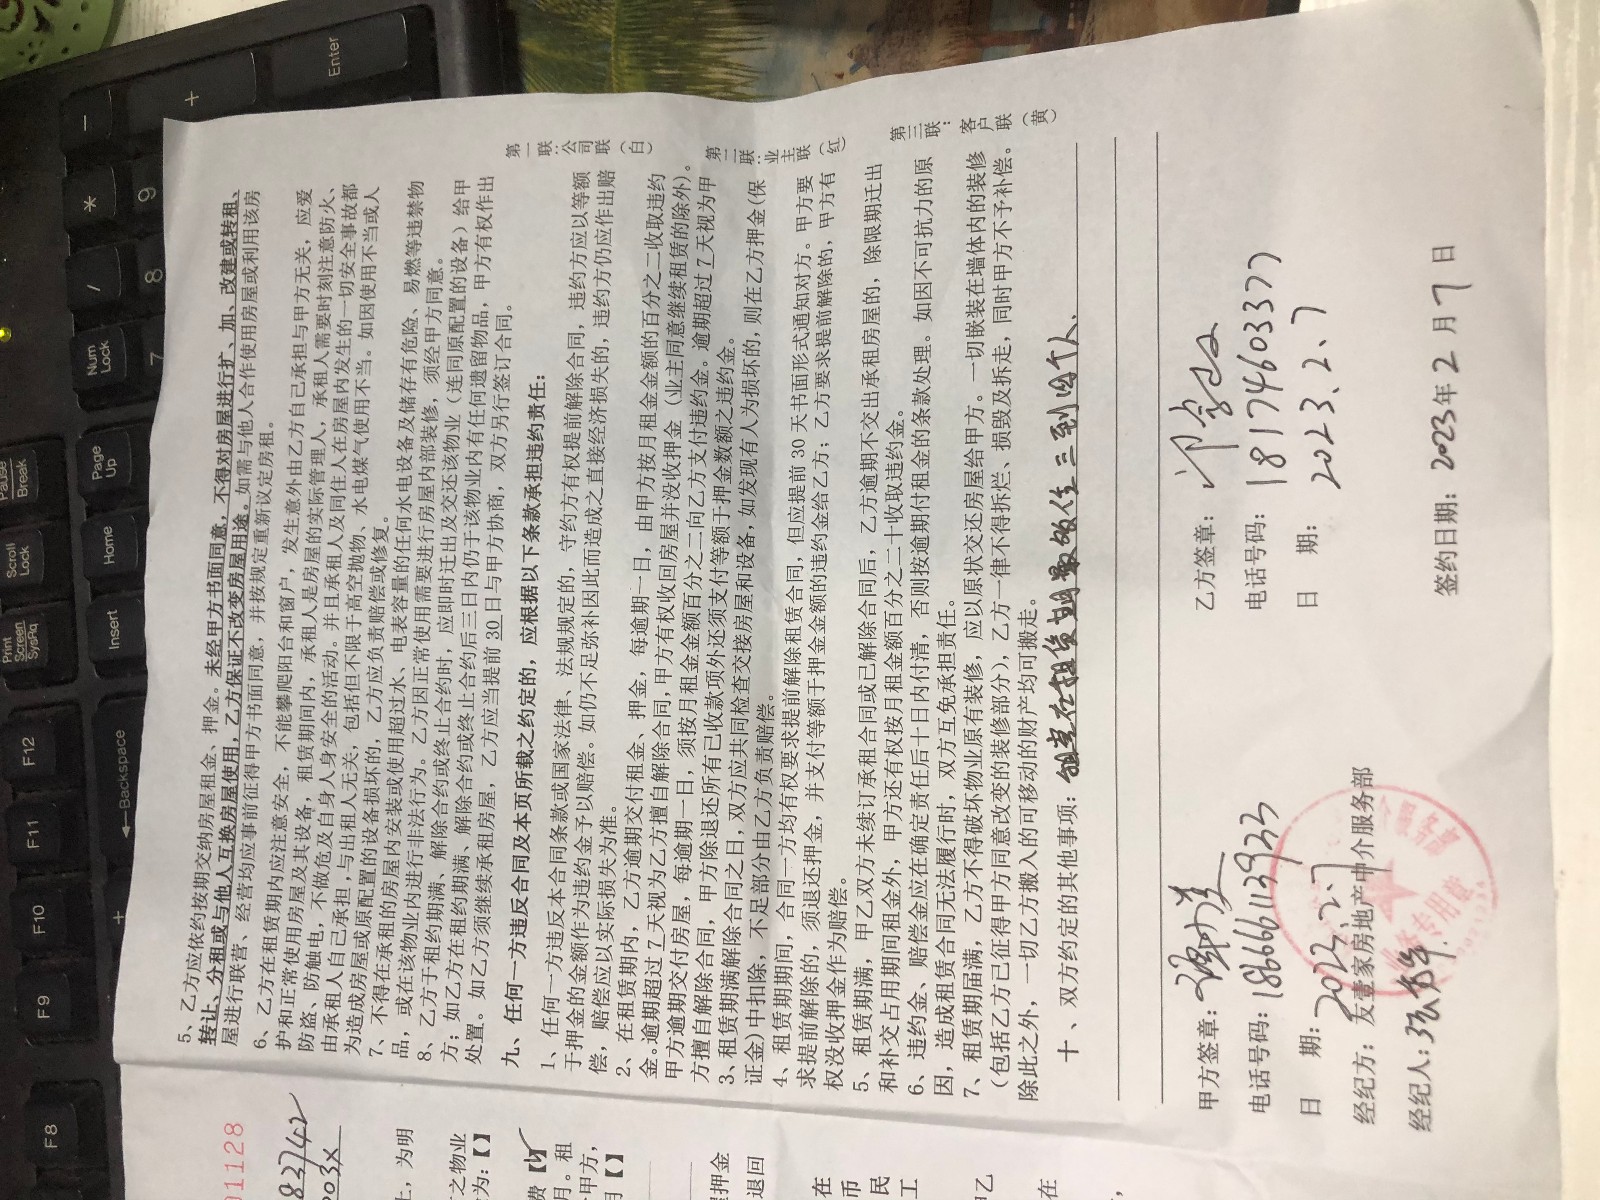 5、乙方应依约按期交纳房屋租金、押金。未经甲方书面同意，不得对房屋进行扩、加、改建或转租、
转让、分租或与他人互换房屋使用，乙方保证不改变房屋用途。如需与他人合作使用房屋或利用该房
屋进行联营、经营均应事前征得甲方书面同意，并按规定重新议定房租。
6、乙方在租赁期内应注意安全，不能攀爬阳台和窗户，发生意外由乙方自己承担与甲方无关，应爱
护和正常使用房屋及其设备，租赁期间内，承租人是房屋的实际管理人，承租人需要时刻注意防火、
防盗、防触电，不做危及自身人身安全的活动。并且承租人及同住人在房屋内发生的一切安全事故都
由承租人自己承担，与出租人无关，包括但不限于高空抛物、水电煤气使用不当。如因使用不当或人
为造成房屋或原配置的设备损坏的，乙方应负责赔偿或修复。
7、不得在承租的房屋内安装或使用超过水、电表容量的任何水电设备及储存有危险、易燃等违禁物
品，或在该物业内进行非法行为。乙方因正常使用需要进行房屋内部装修，须经甲方同意。
8、乙方于租约期满、解除合约或终止合约时，应即时迁出及交还该物业（连同原配置的设备）给甲
方；如乙方在租约期满、解除合约或终止合约后三日内仍于该物业内有任何遗留物品，甲方有权作出
处置。如乙方须继续承租房屋，乙方应当提前30日与甲方协商，双方另行签订合同。
九、任何一方违反合同及本页所载之约定的，应根据以下条款承担违约责任：
1、任何一方违反本合同条款或国家法律、法规规定的，守约方有权提前解除合同，违约方应以等额
于押金的金额作为违约金予以赔偿。如仍不足弥补因此而造成之直接经济损失的，违约方仍应作出赔
偿，赔偿应以实际损失为准。
2、在租赁期内，乙方逾期交付租金、押金，每逾期一日，由甲方按月租金金额的百分之二收取违约
金。逾期超过7天视为乙方擅自解除合同，甲方有权收回房屋并没收押金（业主同意继续租赁的除外）。
甲方逾期交付房屋，每逾期一日，须按月租金金额百分之二向乙方支付违约金。逾期超过7天视为甲
方擅自解除合同，甲方除退还所有已收款项外还须支付等额于押金数额之违约金。
3、租赁期满解除合同之日，双方应共同检查交接房屋和设备，如发现有人为损坏的，则在乙方押金（保
证金）中扣除，不足部分由乙方负责赔偿。
4、租赁期期间，合同一方均有权要求提前解除租赁合同，但应提前30天书面形式通知对方。甲方要
求提前解除的，须退还押金，并支付等额于押金金额的违约金给乙方；乙方要求提前解除的，甲方有
权没收押金作为赔偿。
5、租赁期满，甲乙双方未续订承租合同或已解除合同后，乙方逾期不交出承租房屋的，除限期迁出
和补交占用期间租金外，甲方还有权按月租金额百分之二十收取违约金。
6、违约金、赔偿金应在确定责任后十日内付清，否则按逾期付租金的条款处理。如因不可抗力的原
因，造成租赁合同无法履行时，双方互免承担责任。
7、租赁期届满，乙方不得破坏物业原有装修，应以原状交还房屋给甲方。一切嵌装在墙体内的装修
（包括乙方已征得甲方同意改变的装修部分），乙方一律不得拆烂、损毁及拆走，同时甲方不予补偿。
除此之外，一切乙方搬入的可移动的财产均可搬走。
十、双方约定的其他事项：
住三到四个人.
第一联：公司联（白）
第二联：业主联（红）
第三联：客户联（黄）
甲方签章：
电话号码：18666113933
日 期：
经纪方：友壹家房地产中介服务部
经纪人：
乙方签章：
电话号码：18174603377
日 期：2023.2.7
签约日期：2023年2月7日
专用章
01128
83742
203X
为明
之物业
为：【】
月。租
甲方，
月【】
押金
退回
在
币
民
工
甲乙
在
Enter
+
-
*
/
9
8
7
Num Lock
Page Up
Pause Break
Scroll Lock
Home
Print Screen SysRq
Insert
Backspace
F12
F11
F10
F9
F8